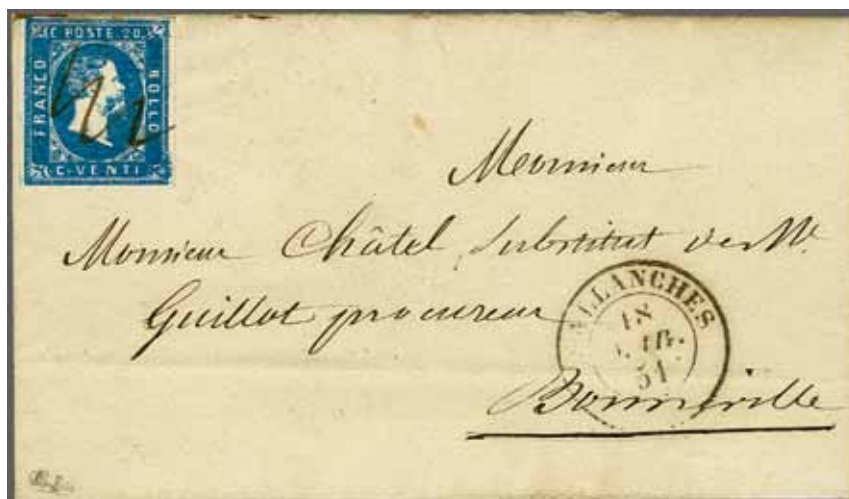 C. POSTE 20.
FRANCO
BOLLO
C. VENTI
Monsieur
Monsieur Châtel, Substitut de Mr.
Guillot procureur
SALLANCHES
18
51
Bonneville